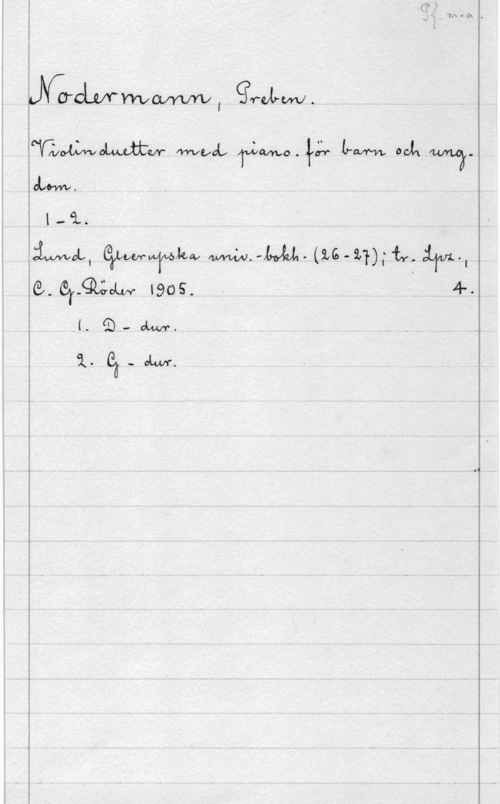 Pf. m-a.
Nodermann, Preben.
Violinduetter med piano. för barn och ung-
dom.
1-2.
Lund, Gleerupska univ.-bokh. (26-27); tr. Lpz.,
C. G. Röder 1905. 4.
1. D - dur.
2. G - dur.